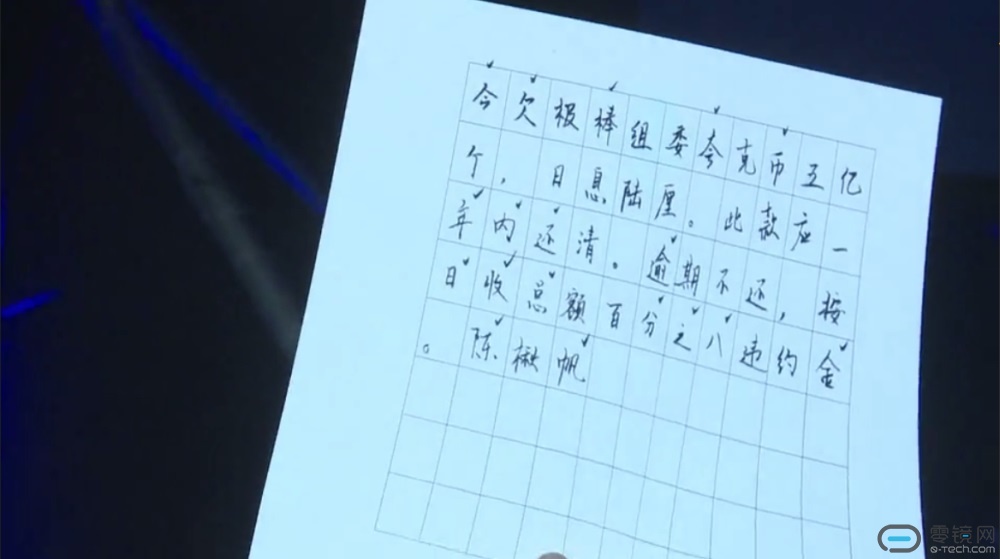 今欠极棒组委夸克币五亿
个，日息陆厘。此款应一
年内还清。逾期不还，按
日收总额百分之八违约金
。陈楸帆
零镜网
e-tech.com